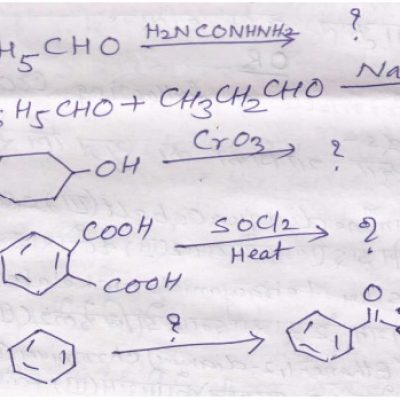 H5CHO H2NCONHNH2 ?
H5CHO + CH3CH2CHO Na
OH CrO3 ?
COOH
COOH SOCl2 Heat ?
? O